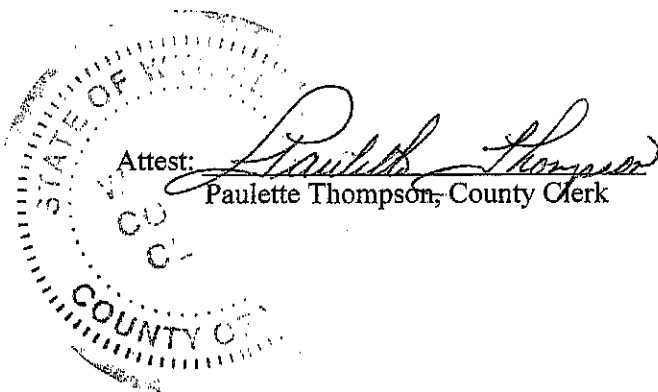 STATE OF
Attest: Paulette Thompson
Paulette Thompson, County Clerk
COUNTY OF